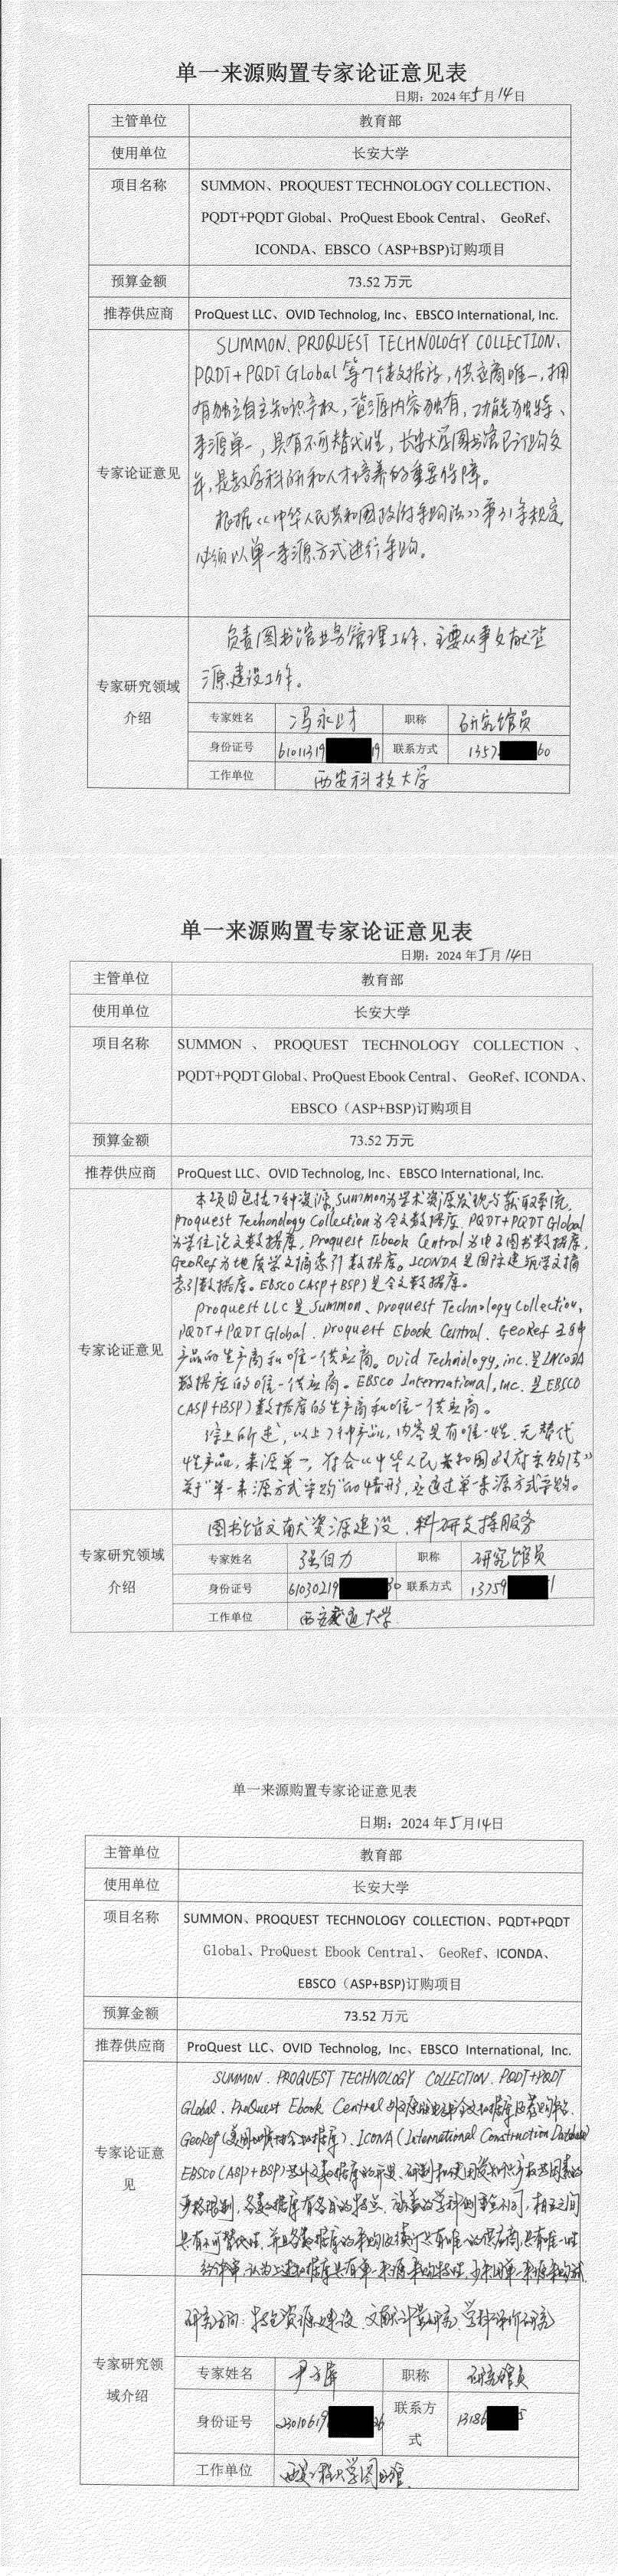 单一来源购置专家论证意见表
日期：2024年5月14日
主管单位 教育部
使用单位 长安大学
项目名称 SUMMON、PROQUEST TECHNOLOGY COLLECTION、
PQDT+PQDT Global、ProQuest Ebook Central、 GeoRef、
ICONDA、EBSCO（ASP+BSP)订购项目
预算金额 73.52 万元
推荐供应商 ProQuest LLC、OVID Technolog, Inc、EBSCO International, Inc.
专家论证意见
SUMMON、PROQUEST TECHNOLOGY COLLECTION、
PQDT+PQDT Global 等7个数据库，供应商唯一，拥
有独立自主知识产权，资源内容独有，功能独特、
来源单一，具有不可替代性，长安大学图书馆已订购多
年，是教学科研和人才培养的重要保障。
根据《中华人民共和国政府采购法》第31条规定，
必须以单一来源方式进行采购。
专家研究领域
介绍
负责图书馆业务管理工作，主要从事文献资
源建设工作。
专家姓名 冯永财 职称 研究馆员
身份证号 61011319 19 联系方式 1357 60
工作单位 西安科技大学
单一来源购置专家论证意见表
日期：2024年5月14日
主管单位 教育部
使用单位 长安大学
项目名称 SUMMON 、 PROQUEST TECHNOLOGY COLLECTION 、
PQDT+PQDT Global、ProQuest Ebook Central、 GeoRef、ICONDA、
EBSCO（ASP+BSP)订购项目
预算金额 73.52 万元
推荐供应商 ProQuest LLC、OVID Technolog, Inc、EBSCO International, Inc.
专家论证意见
本项目包括7种资源，Summon为学术资源发现与获取系统，
Proquest Techonology Collection为全文数据库，PQDT+PQDT Global
为学位论文数据库，Proquest Ebook Central为电子图书数据库，
GeoRef为地质学文摘索引数据库。ICONDA是国际建筑学文摘
索引数据库。EBSCO(ASP+BSP)是全文数据库。
Proquest LLC是Summon、Proquest Technology Collection,
PQDT+PQDT Global、Proquest Ebook Central、GeoRef 5种
产品的生产商和唯一供应商。Ovid Technology, inc.是
数据库的唯一供应商。EBSCO International, inc.是EBSCO
(ASP+BSP)数据库的生产商和唯一供应商。
综上所述，以上7种产品，内容具有唯一性，无替代
性产品，来源单一，符合《中华人民共和国政府采购法》
关于“单一来源方式采购”的情形，应通过单一来源方式采购。
专家研究领域
介绍
图书馆文献资源建设、科研支持服务
专家姓名 强自力 职称 研究馆员
身份证号 61030219 30 联系方式 13759 1
工作单位 西安交通大学
单一来源购置专家论证意见表
日期：2024年5月14日
主管单位 教育部
使用单位 长安大学
项目名称 SUMMON、PROQUEST TECHNOLOGY COLLECTION、PQDT+PQDT
Global、ProQuest Ebook Central、 GeoRef、ICONDA、
EBSCO（ASP+BSP)订购项目
预算金额 73.52 万元
推荐供应商 ProQuest LLC、OVID Technolog, Inc、EBSCO International, Inc.
专家论证意
见
SUMMON、PROQUEST TECHNOLOGY COLLECTION、PQDT+PQDT
Global、ProQuest Ebook Central
GeoRef ICONA (International Construction Database)
EBSCO(ASP+BSP)
严格限制，各数据库有各自的特点，涵盖的学科侧重点不同，相互之间
具有不可替代性，并且各数据库的采购及续订只有唯一的供应商，具有唯一性
专家研究领
域介绍
研究方向：特色资源建设、文献计量研究、学科评价研究
专家姓名 职称 研究馆员
身份证号 23010619 26 联系方
式 13186 5
工作单位